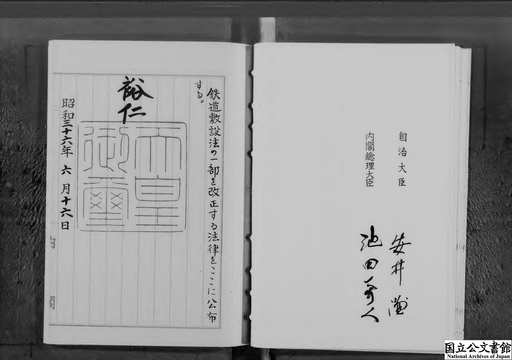 鉄道敷設法の一部を改正する法律をここに公布
する。
裕仁
天皇
御璽
昭和三十六年 六月 十六日
自治大臣 安井謙
内閣総理大臣 池田勇人
国立公文書館
National Archives of Japan